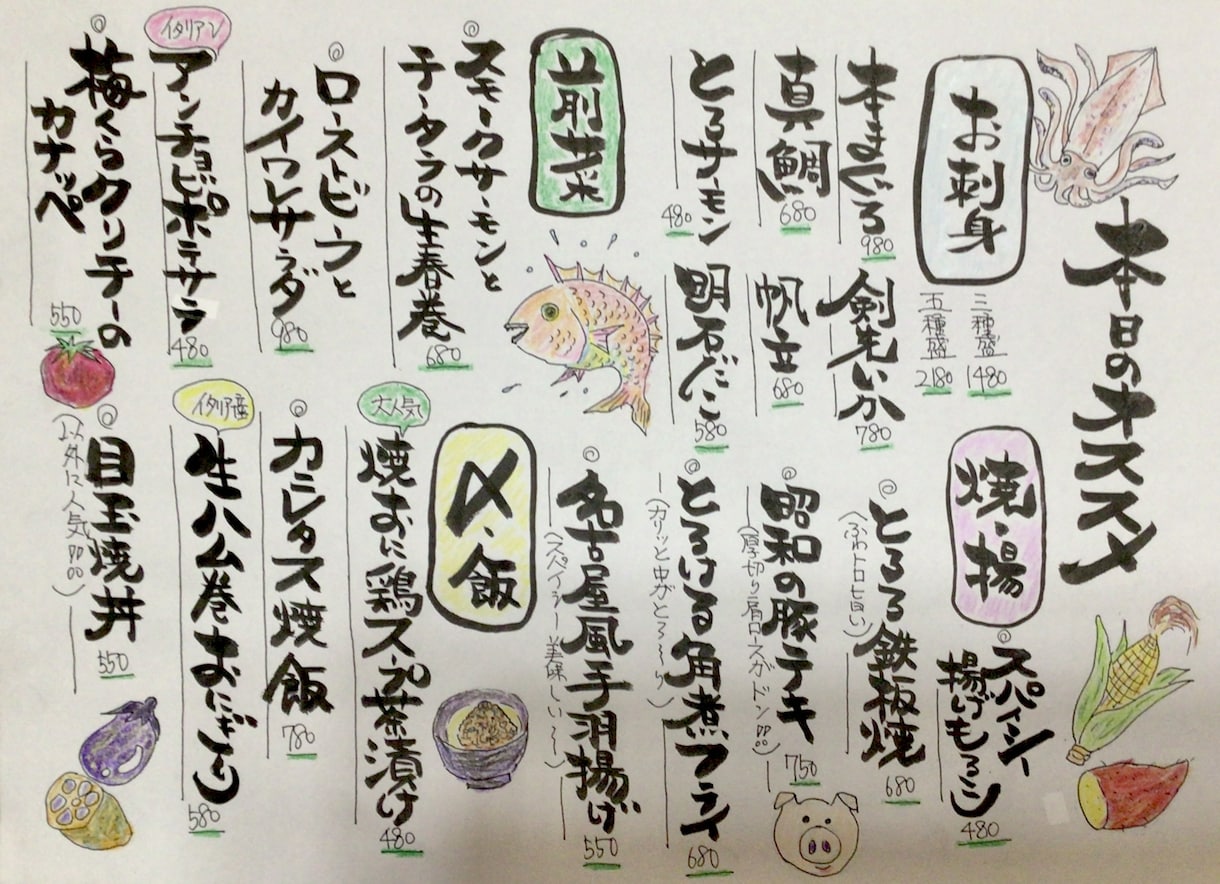 本日のオススメ
お刺身
三種盛 1480
五種盛 2180
本まぐろ 980
剣先いか 780
真鯛 680
帆立 680
とろサーモン 480
明石だこ 580
前菜
スモークサーモンと
チータラの生春巻 680
ローストビーフと
カイワレサラダ 980
イタリアン
アンチョビポテサラ 480
梅くらクリチーの
カナッペ 550
焼・揚
スパイシー
揚げもろこし 480
とろろ鉄板焼 680
(ふわトロ旨い)
昭和の豚テキ 750
(厚切り肩ロースがドン!!!)
とろける角煮フライ 680
(カリッと中がとろ〜り)
名古屋風手羽揚げ 550
(スパイシー美味しい〜)
〆・飯
大人気
焼おに鶏スープ茶漬け 480
カニレタス焼飯 780
イタリア産
生ハム巻おにぎり 580
目玉焼丼 550
(以外に人気!!!)